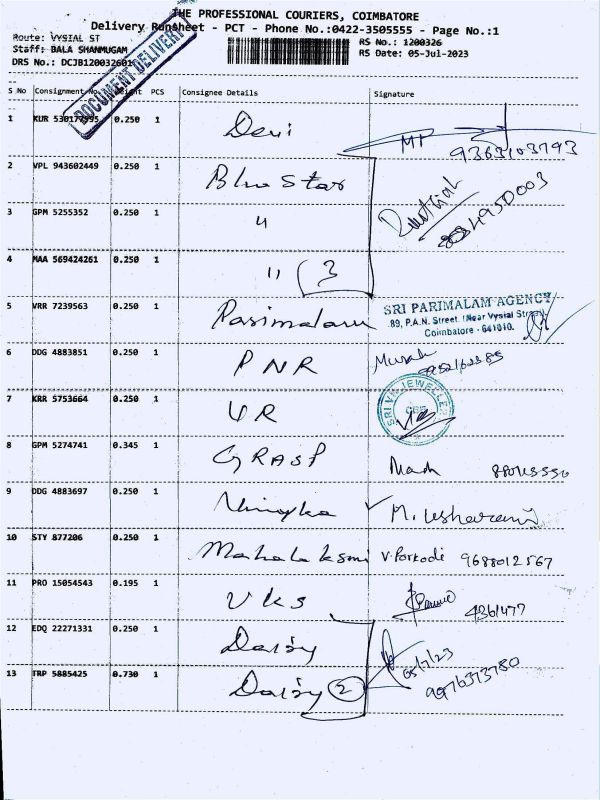 THE PROFESSIONAL COURIERS, COIMBATORE
Delivery Runsheet - PCT - Phone No.:0422-3505555 - Page No.:1
Route: VYSIAL ST
RS No.: 1200326
Staff: BALA SHANMUGAM
RS Date: 05-Jul-2023
DRS No.: DCJB120032601
DOCUMENT DELIVERY
S No Consignment No. Weight PCS Consignee Details Signature
1 KUR 0.250 1 Devi 9363103793
2 VPL 943602449 0.250 1 Blue Star
3 GPM 5255352 0.250 1 "
4 MAA 569424261 0.250 1 " 3
5 VRR 7239563 0.250 1 Parimalam SRI PARIMALAM AGENCY
89, P.A.N. Street, (Near Vysial Street)
Coimbatore - 641010.
6 DDG 4883851 0.250 1 PNR
7 KRR 5753664 0.250 1 VR SRI VR JEWELLER CBE
8 GPM 5274741 0.345 1 GRASP
9 DDG 4883697 0.250 1 M. Usharani
10 STY 877206 0.250 1 Mahalaksmi V. Porkodi 9688012567
11 PRO 15054543 0.195 1 VKS 4361477
12 EDQ 22271331 0.250 1 Daisy 05/7/23
13 TRP 5885425 0.730 1 Daisy 2